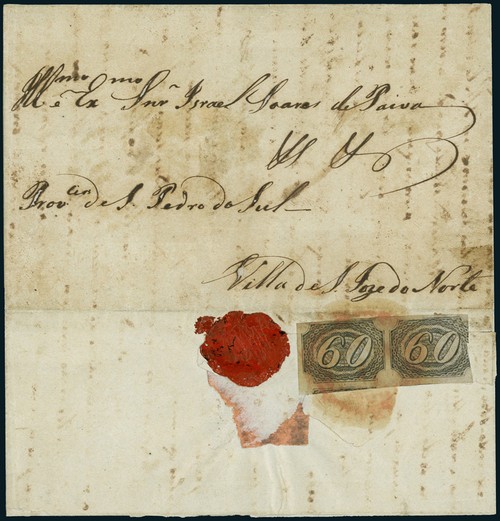 Illmo e Exmo Snr. Israel Soares de Paiva
Prov.cia de S. Pedro do Sul
Villa de S. Joze do Norte
60 60